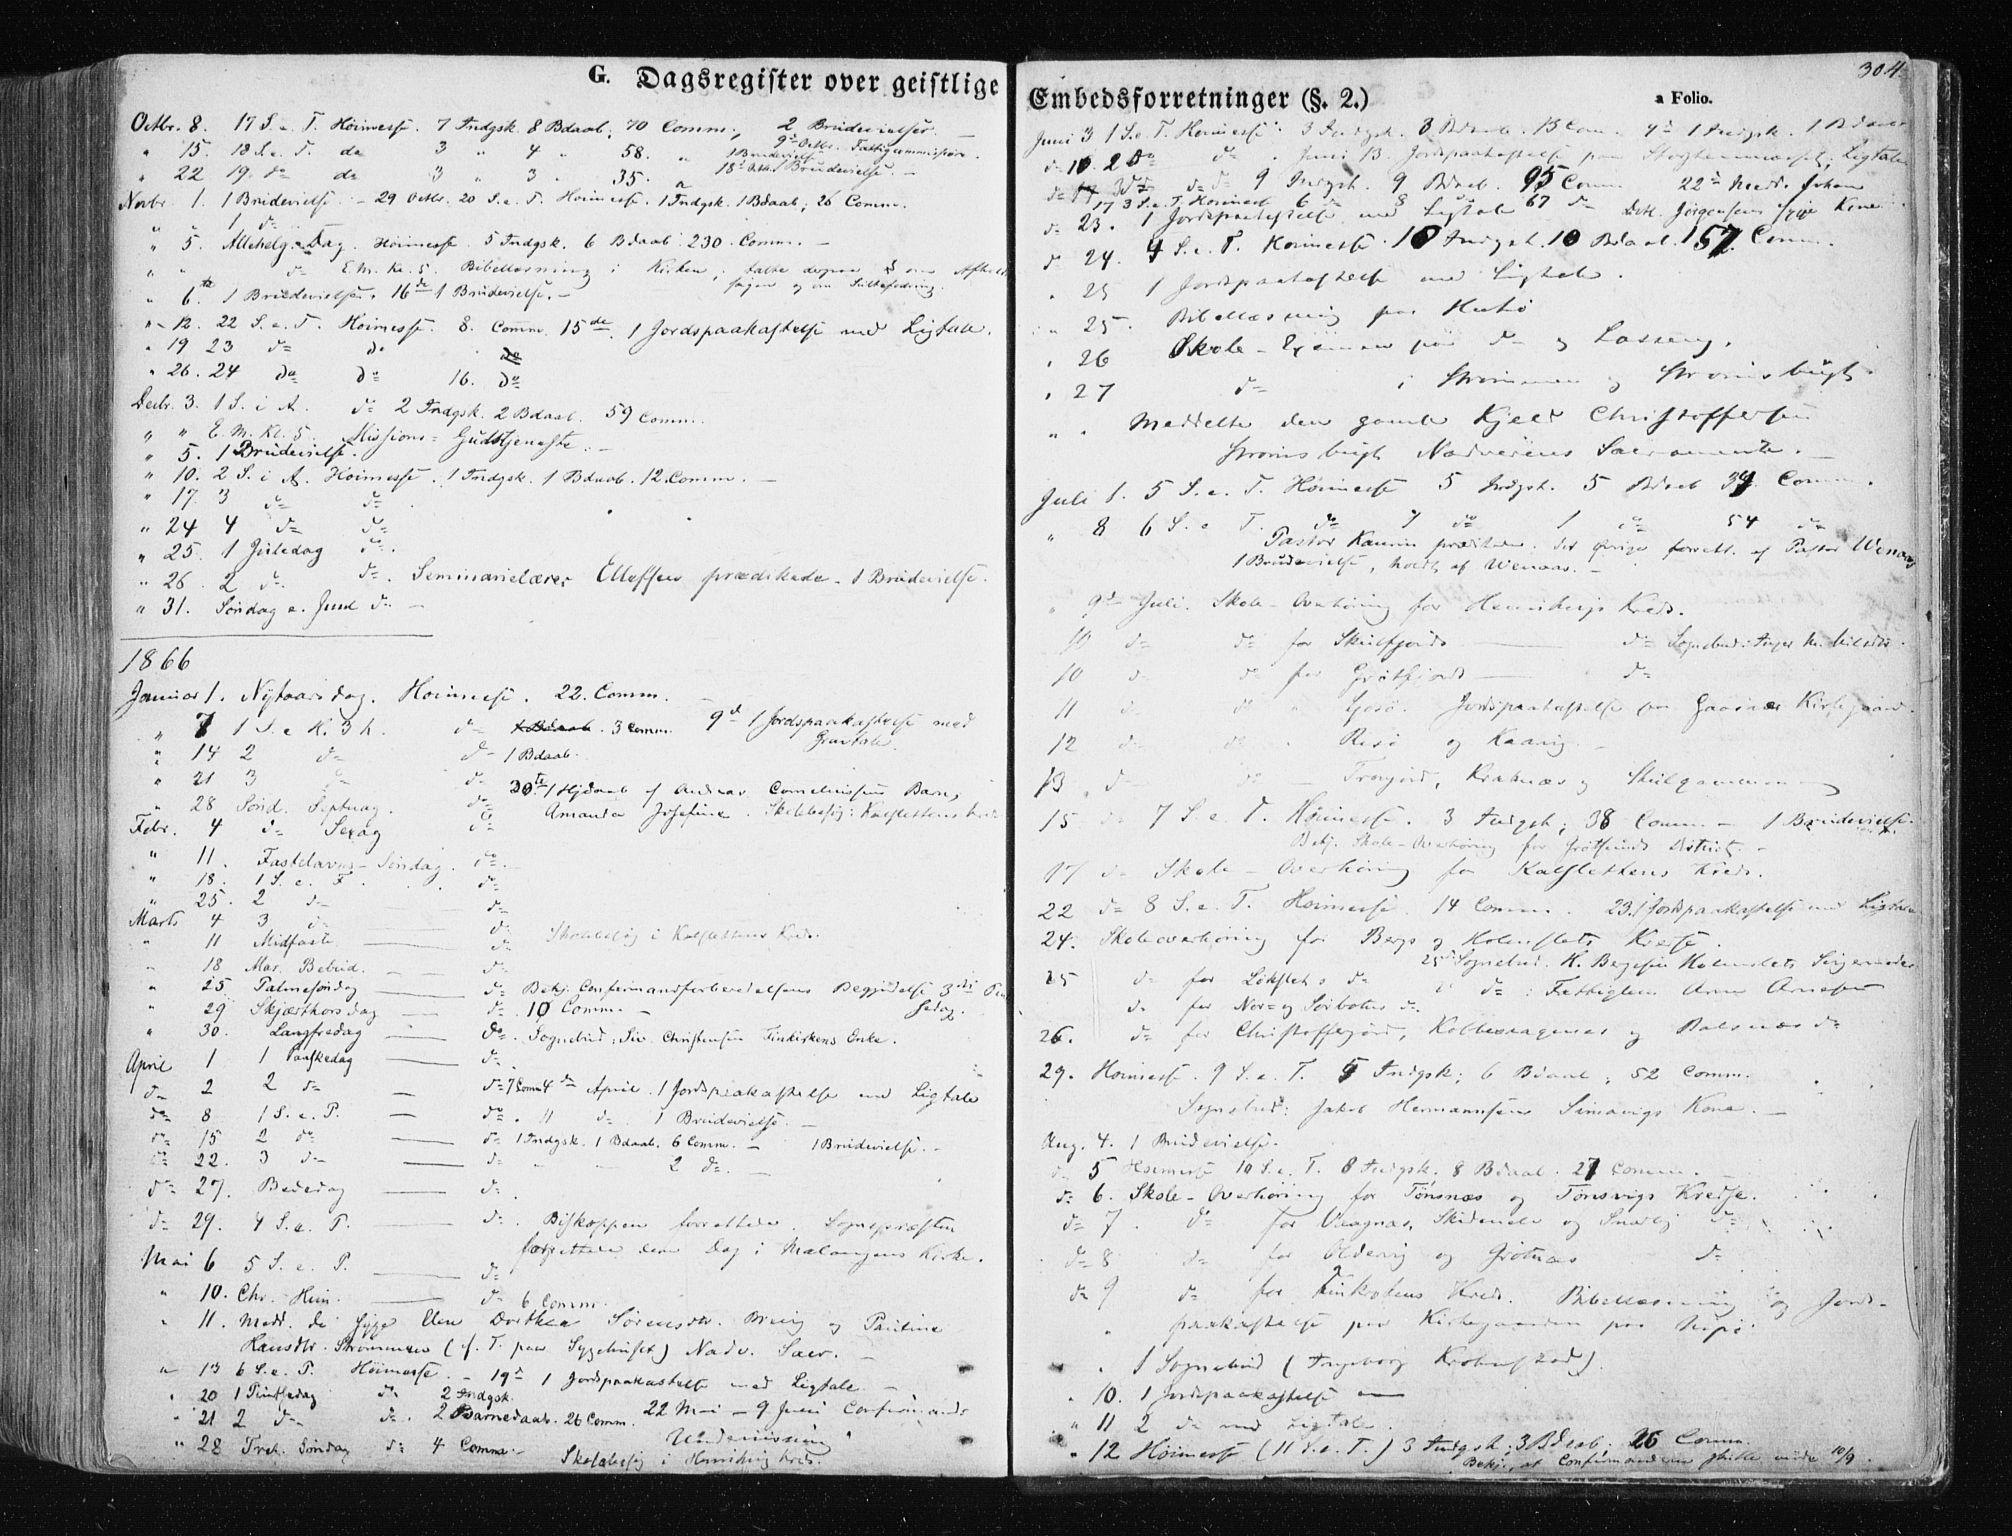 G. Dagsregister over geistlige
Octbr. 8. 17 S. e. T. Høimesse. 7 Indgsk. 8 Bdaab, 70 Comm., 2 Brudevielser. —
" 15. 18 S. e. T. do 3 " 4 " 58. " 9de Octbr. Fattigcommission. 1 Brudevielse
" 22 19. do do 3 " 3 " 35. " 18de Octbr. 1 Brudevielse. —
Novbr. 1. 1 Brudevielse. — 29 Octbr. 20 S. e. T. Høimesse. 1 Indgsk. 1 Bdaab; 26 Comm.
" " 1 do —
" 5. Allehelg. Dag. Høimesse 5 Indgsk. 6 Bdaab. 230. Comm. —
" " do E. M. Kl. 5. Bibellæsning i Kirken; talte
" 6te 1 Brudevielse. 16de 1 Brudevielse. —
" 12. 22 S. e. T. Høimesse. 8. Comm. 15de. 1 Jordspaakastelse med Ligtale.
" 19 23 do do do
" 26. 24 do do 16. do
Decbr. 3. 1 S. i A. do 2 Indgsk. 2 Bdaab. 59 Comm.
" " E. M. Kl. 5. Missions-Gudstjeneste. —
" 5. 1 Brudevielse.
" 10. 2 S. i A. Høimesse. 1 Indgsk. 1 Bdaab. 12. Comm. —
" 17 3 do do
" 24 4 do do
" 25. 1 Juledag do.
" 26. 2 do. do. Seminarielærer Ellefsen prædikede — 1 Brudevielse.
" 31. Søndag e. Juul do —
1866
Januar 1. Nytaarsdag. Høimesse. 22. Comm. —
" 7 1 S. e. H. 3 K. do 1 Bdaab. 3 Comm. 9de 1 Jordspaakastelse med
Gravtale.
" 14 2 do do 1 Bdaab.
" 21 3 do do 30te 1 Hjdaab af Andreas Cornelius Barn,
" 28 Sønd. Septuag. do Amanda Josefine. Skolebesøg i Kalslettens Kreds
Febr. 4 do Sexag do
" 11. Fastelavns-Søndag. do —
" 18. 1 S. e. F. do
" 25. 2 do do
Marts 4 3 do do
" 11 Midfaste — do Skolebesøg i Kalslettens Kreds.
" 18 Mar. Bebud. — do
" 25 Palmesøndag — do Bekj. Confirmandforberedelsens Begyndelse 3die
" 29 Skjærthorsdag — do. 10 Comm. —
" 30. Langfredag — do. Sognebud: Siv. Christensen Finkirkens Enke.
April 1 1 Paaskedag — do.
do 2 2 do — do 7 Comm 4de April. 1 Jordspaakastelse med Ligtale
do 8 1 S. e. P. — do. 11 do 1 Brudevielse. —
do 15 2 do — do 1 Indgsk. 1 Bdaab. 6 Comm. — 1 Brudevielse. —
do 22. 3 do — do — — 2 do. —
do 27. Bededag — do.
do 29. 4 S. e. P. — do. Biskoppen forrettede. Sognepræsten
forrettede den Dag i Malangens Kirke.
Mai 6 5 S. e. P. — do
" 10. Chr. Him. — do 6 Comm.
" 11. Medd. de syge Elen Dorthea Sørensdtr. og Pauline
Hansdtr. Strømmen (p. T. paa Sygehuset) Nadv. Sacr. —
" 13 6 S. e. P. Høimesse. — 19de 1 Jordspaakastelse med Ligtale —
" 20 1 Pintsedag do 2 Indgsk.
" 21 2 do do. 2 Barnedaab. 26 Comm. 22 Mai — 9 Juni Confirmands
Undervisning
" 28 Tref. Søndag do 4 Comm. — Skolebesøg i Kreds.
Embedsforretninger (§. 2.)
304
a Folio.
Juni 3 1 S. e. T. Høimesse. 3 Indgsk. 3 Bdaab. 13 Com. 1 Indgsk. 1 Bdaab
do 10. 2 do do. Juni 13. Jordspaakastelse paa Ligtale
do 17 3 do do 9 Indgsk. 9 Bdaab. 95 Comm. 22de Medd. Johan
17 3 S. e. T. Høimesse 6 do 8 67 do Jørgensens syge Kone.
do 23. 1 Jordspaakastelse med Ligtale
do 24. 4 S. e. T. Høimesse. 10 Indgsk. 10 Bdaab. 157 Comm.
" 25 1 Jordspaakastelse med Ligtale.
" 25. Bibellæsning paa
" 26 Skole-Examen paa do og
" 27 do i Strømmen og Strømsbugt
" " Meddelte den gamle Kjeld Christoffersen
Strømsbugt Nadverens Sacramente. —
Juli 1. 5 S. e. T. Høimesse 5 Indgsk. 5 Bdaab 34 Comm.
" 8 6 S. e. T. do 7 do 1 do 54 do
Pastor Kaurin prædikede. Det øvrige forrett. af Pastor Wenaas
1 Brudevielse, holdt af Wenaas. —
" 9de Juli. Skole-Overhøring for Kreds.
10 do do for Skulsfjords — do
10 do do for Grøtfjord — do
11 do do " Jordspaakastelse paa Gaasnæs Kirkegaard.
12 do do " Risø og —
13 do do — Tromjord, og
15 do 7 S. e. T. Høimesse. 3 Indgsk; 38 Comm. — 1 Brudevielse.
Bekj. Skole-Overhøring for Grøtsunds District. —
17 do Skole-Overhøring for Kalslettens Kreds.
22 do 8 S. e. T. Høimesse. 14 Comm. 23. 1 Jordspaakastelse med Ligtale
24. Skoleoverhøring for Bergs og Holmslets Kredse.
25 Sognebud. H. Bergesen Holmslets
25 do for do do : Fattiglem Arnesen
do for Nor- og do.
26. do for Christofferjord, Kobbevaagnes og Balsnæs do
29. Høimesse. 9 S. e. T. 5 Indgsk; 6 Bdaab; 52 Comm.
Sognebud: Jakob Hermannsen Simavigs Kone. —
Aug. 4. 1 Brudevielse.
do 5 Høimesse 10 S. e. T. 8 Indgsk; 8 Bdaab. 27 Comm. —
do 6. Skole-Overhøring for Tønsnæs og Tønsvigs Kredse.
do 7. do for Vaagnæs, og do
do 8 do for Oldervig og Grøtnæs do
do 9 do for Finkrokens Kreds. Bibellæsning og Jords-
paakastelse paa Kirkegaarden paa
" 1 Sognebud (Ingeborg
" 10. 1 Jordspaakastelse —
" 11 2 do med Ligtale.
" 12 Høimesse (11 S. e. T.) 3 Indgsk; 3 Bdaab; 26 Comm.
Bekj., at Confirmanderne skulle møde 10/9.